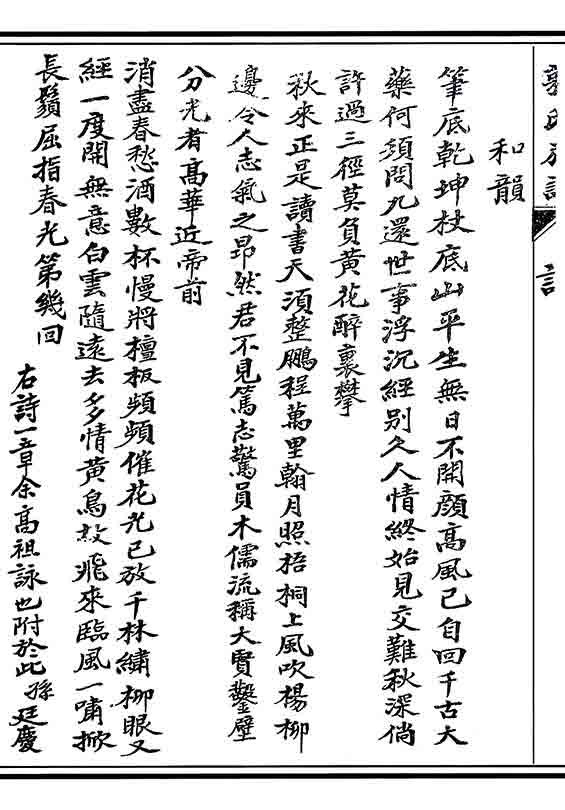 和韻
筆底乾坤杖底山平生無日不開顏高風已自回千古大
藥何須問九還世事浮沉經別久人情終始見交難秋深倘
許過三徑莫負黃花醉裏攀
秋來正是讀書天須整鵬程萬里翰月照梧桐上風吹楊柳
邊令人志氣之昂然君不見篤志驚員木儒流稱大賢鑿壁
分光者高華近帝前
消盡春愁酒數杯慢將檀板頻頻催花光已放千林繡柳眼又
經一度開無意白雲隨遠去多情黃鳥飛來臨風一嘯掀
長鬚屈指春光第幾回
右詩一章余高祖詠也附於此 孫廷慶